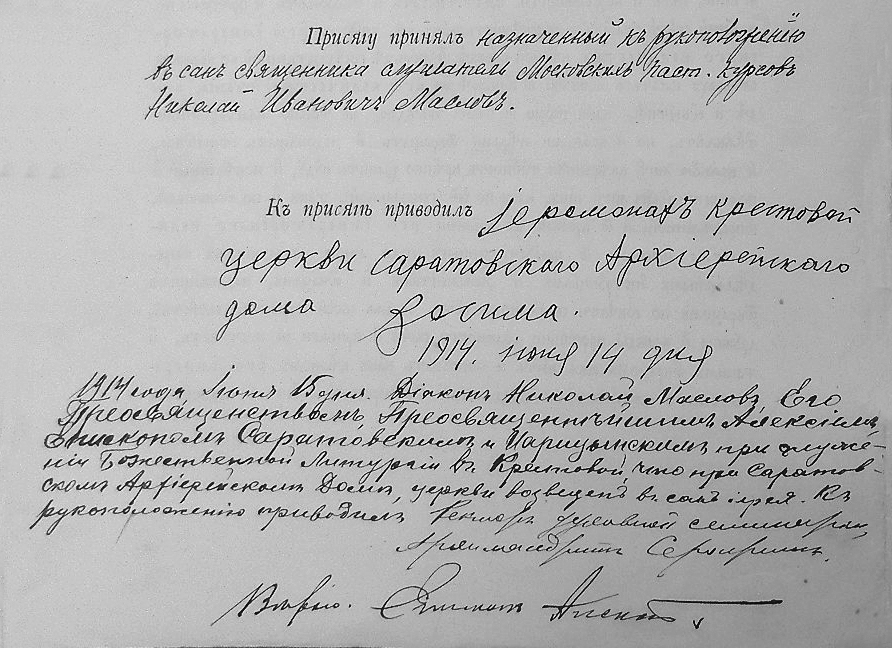 Присягу принялъ назначенный къ рукоположенію
въ санъ священника слушатель Московскихъ паст. курсовъ
Николай Ивановичъ Масловъ.
Къ присягѣ приводилъ Іеромонахъ Крестовой
церкви Саратовского Архіерейского
дома Зосима.
1914. іюня 14 дня
1914 года, Іюня 15 дня. Діаконъ Николай Масловъ Его
Преосвященствомъ, Преосвященнѣйшимъ Алексіемъ,
Епископомъ Саратовскимъ и Царицынскимъ при служе-
ніи Божественной Литургіи въ Крестовой, что при Саратов-
скомъ Архіерейскомъ Домѣ, церкви возведенъ въ санъ іерея. Къ
рукоположенію приводилъ Ректоръ духовной семинаріи,
Архимандритъ Серафимъ.
Епископъ Алексій